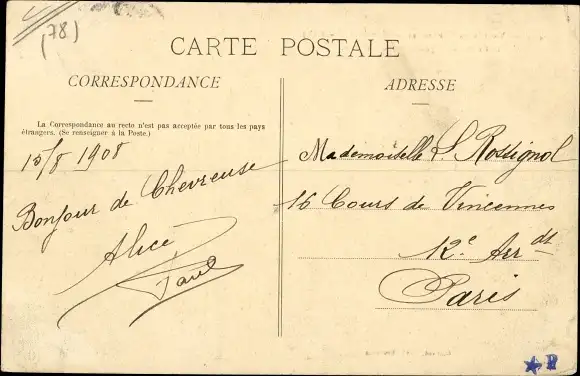 (78)
CARTE POSTALE
CORRESPONDANCE
ADRESSE
La Correspondance au recto n'est pas acceptée par tous les pays
étrangers. (Se renseigner à la Poste.)
15/8 1908
Bonjour de Chevreuse
Alice
Paul
Mademoiselle S. Rossignol
16 Cours de Vincennes
12e Arrdt
Paris